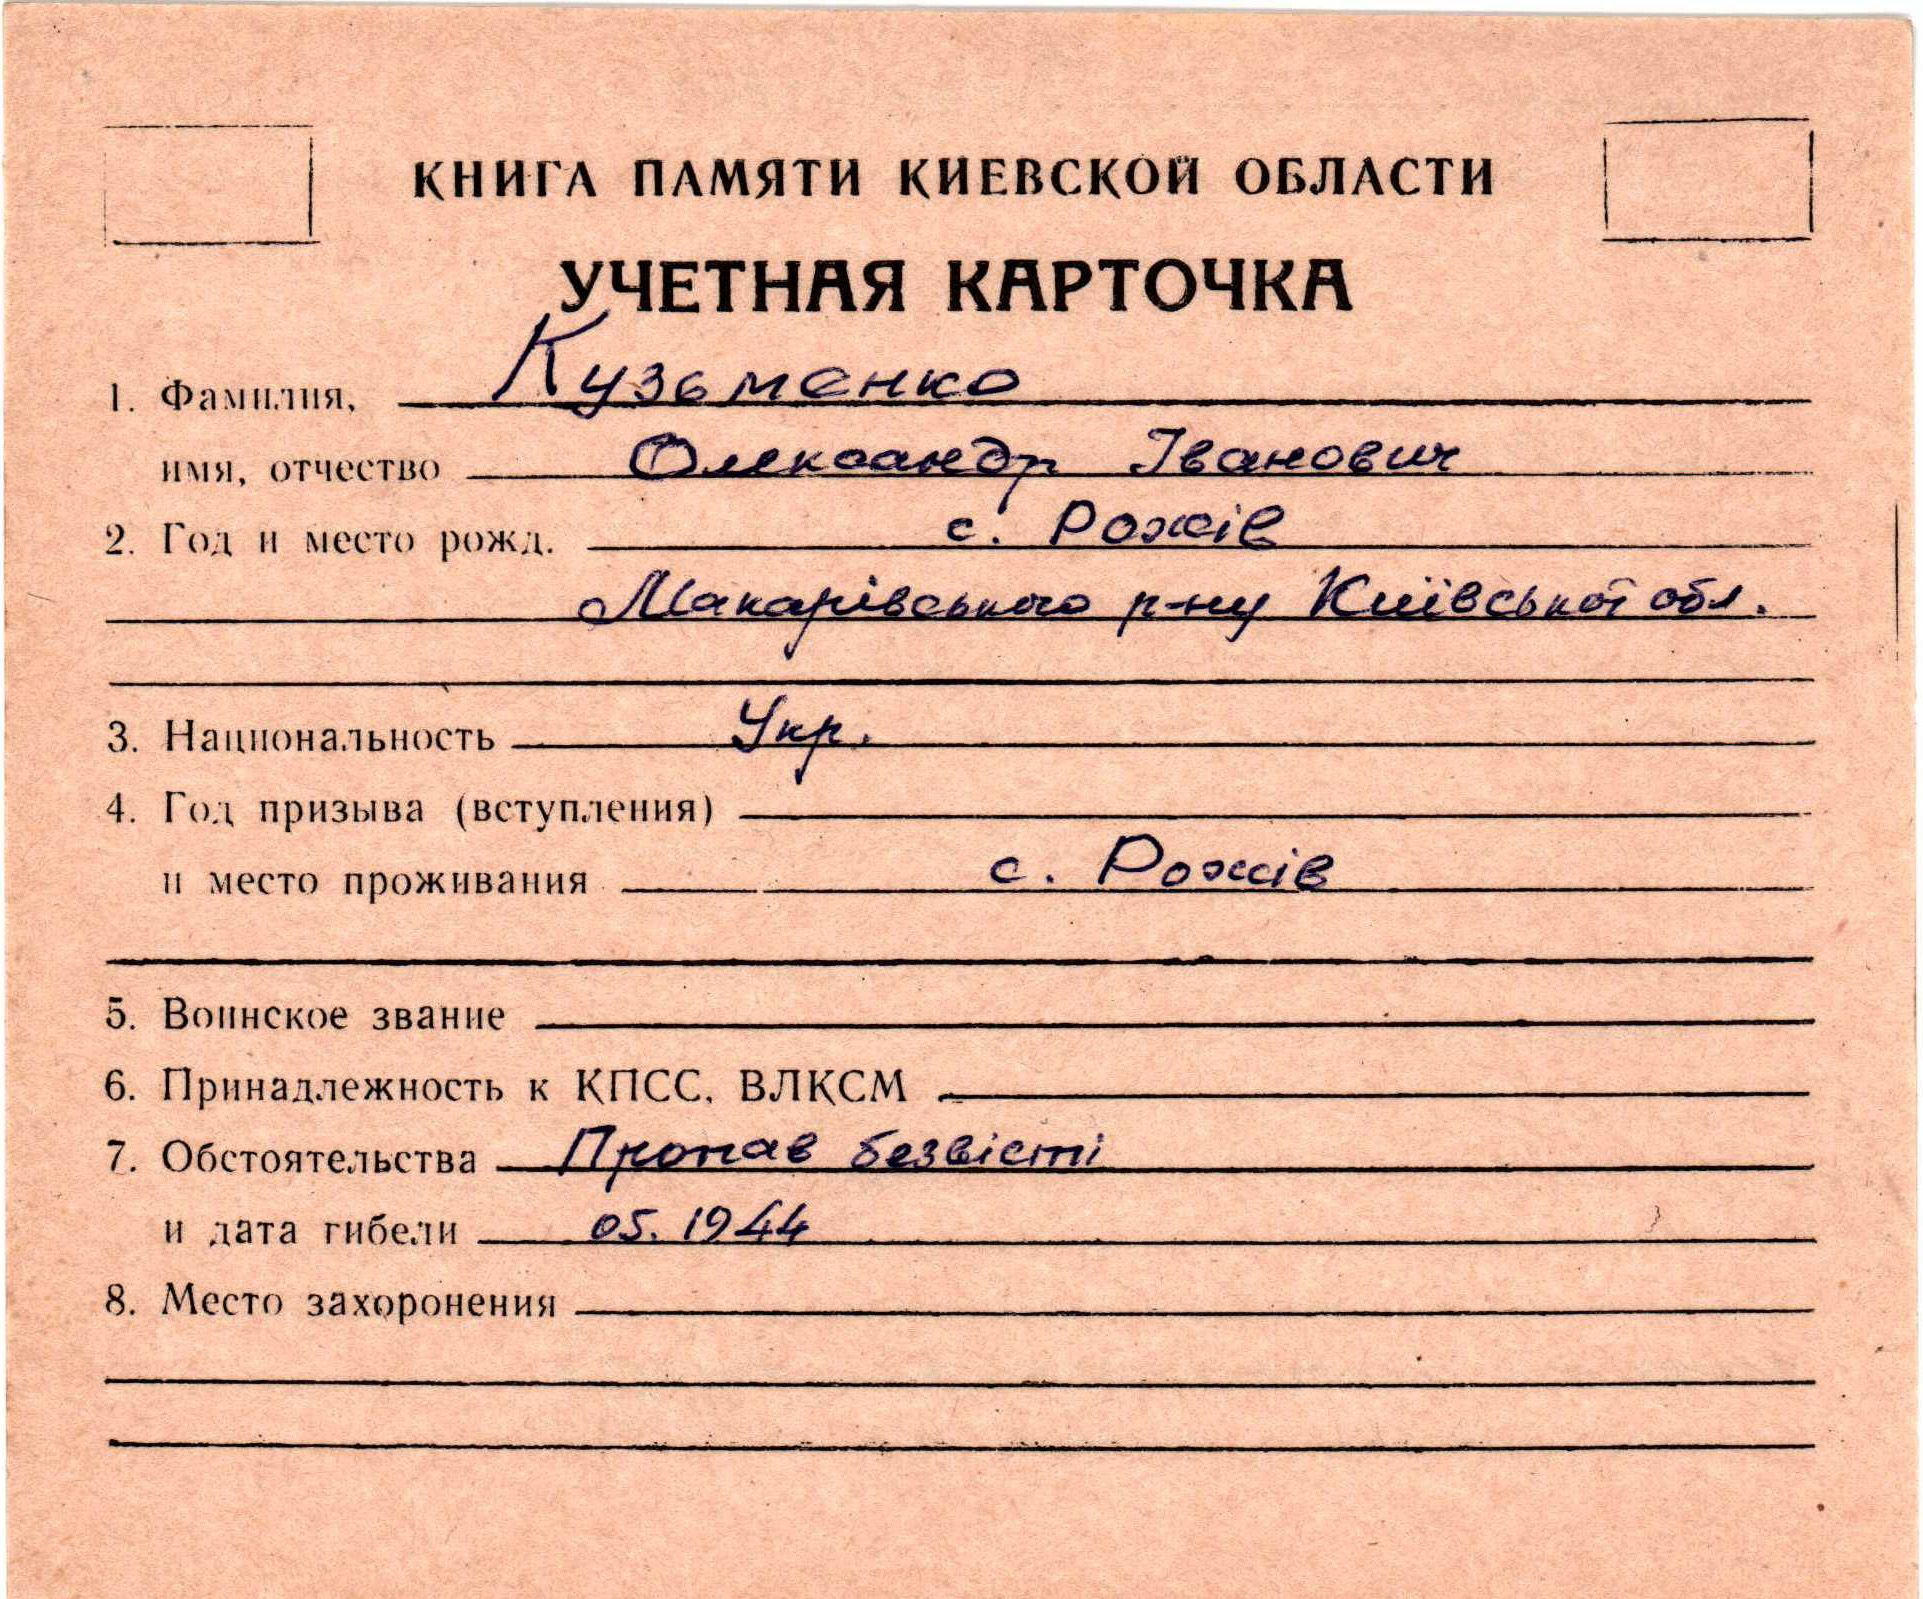 КНИГА ПАМЯТИ КИЕВСКОЙ ОБЛАСТИ
УЧЕТНАЯ КАРТОЧКА
1. Фамилия, Кузьменко
имя, отчество Олександр Іванович
2. Год и место рожд. с. Рожів
Макарівського р-ну Київської обл.
3. Национальность Укр.
4. Год призыва (вступления)
и место проживания с. Рожів
5. Воинское звание
6. Принадлежность к КПСС, ВЛКСМ
7. Обстоятельства Пропав безвісті
и дата гибели 05. 1944
8. Место захоронения